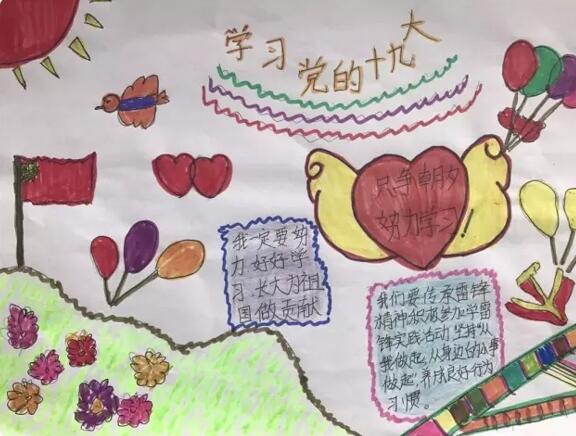 学习党的十九大
只争朝夕
努力学习！
我一定要努
力好好学
习，长大为祖
国做贡献
我们要传承雷锋
精神积极参加学雷
锋实践活动，坚持“从
我做起，从身边的小事
做起”，养成良好行为
习惯。